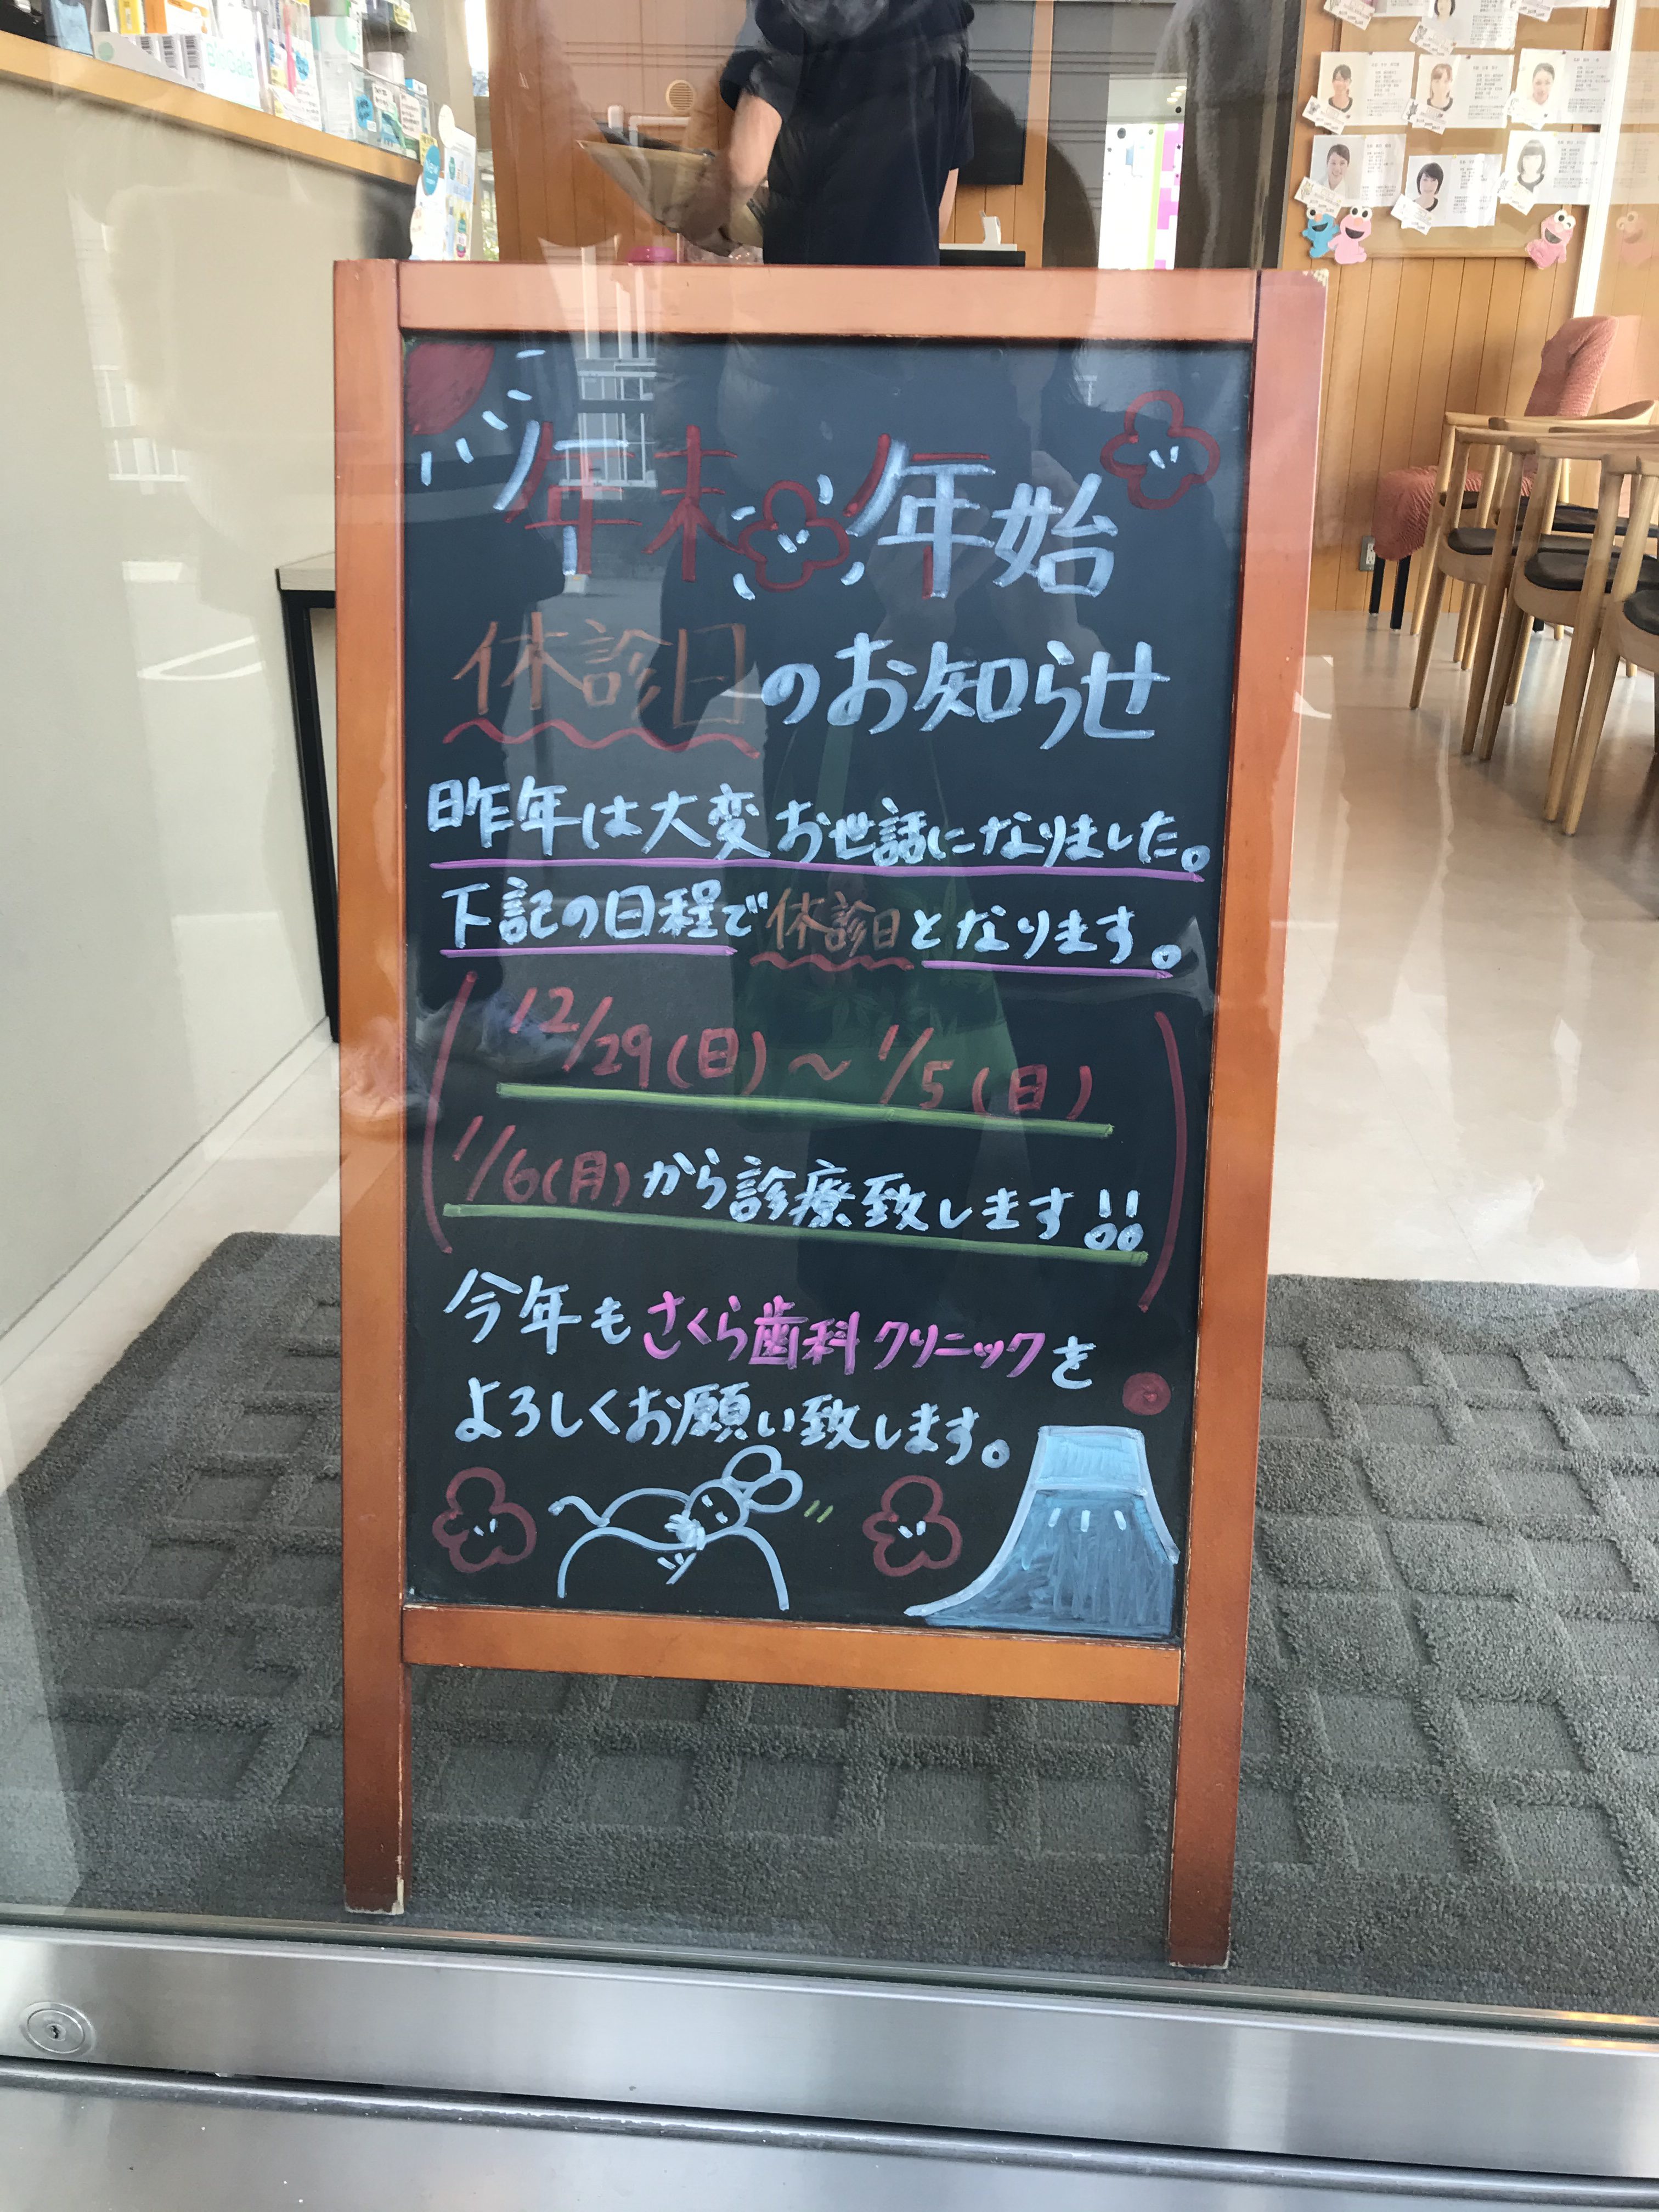 年末年始
休診日のお知らせ
昨年は大変お世話になりました。
下記の日程で休診日となります。
12/29(日)～1/5(日)
1/6(月)から診療致します!!
今年もさくら歯科クリニックを
よろしくお願い致します。